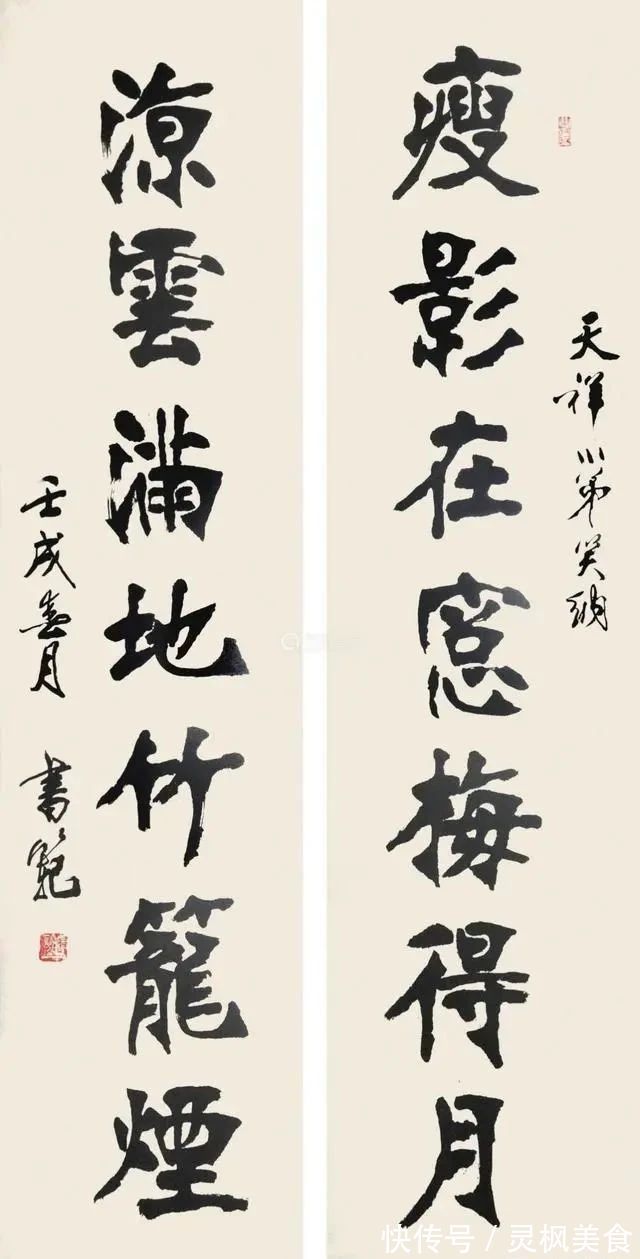 瘦影在窻梅得月
天祥小弟笑納
涼雲滿地竹籠煙
壬戌春月 書
快传号/灵枫美食